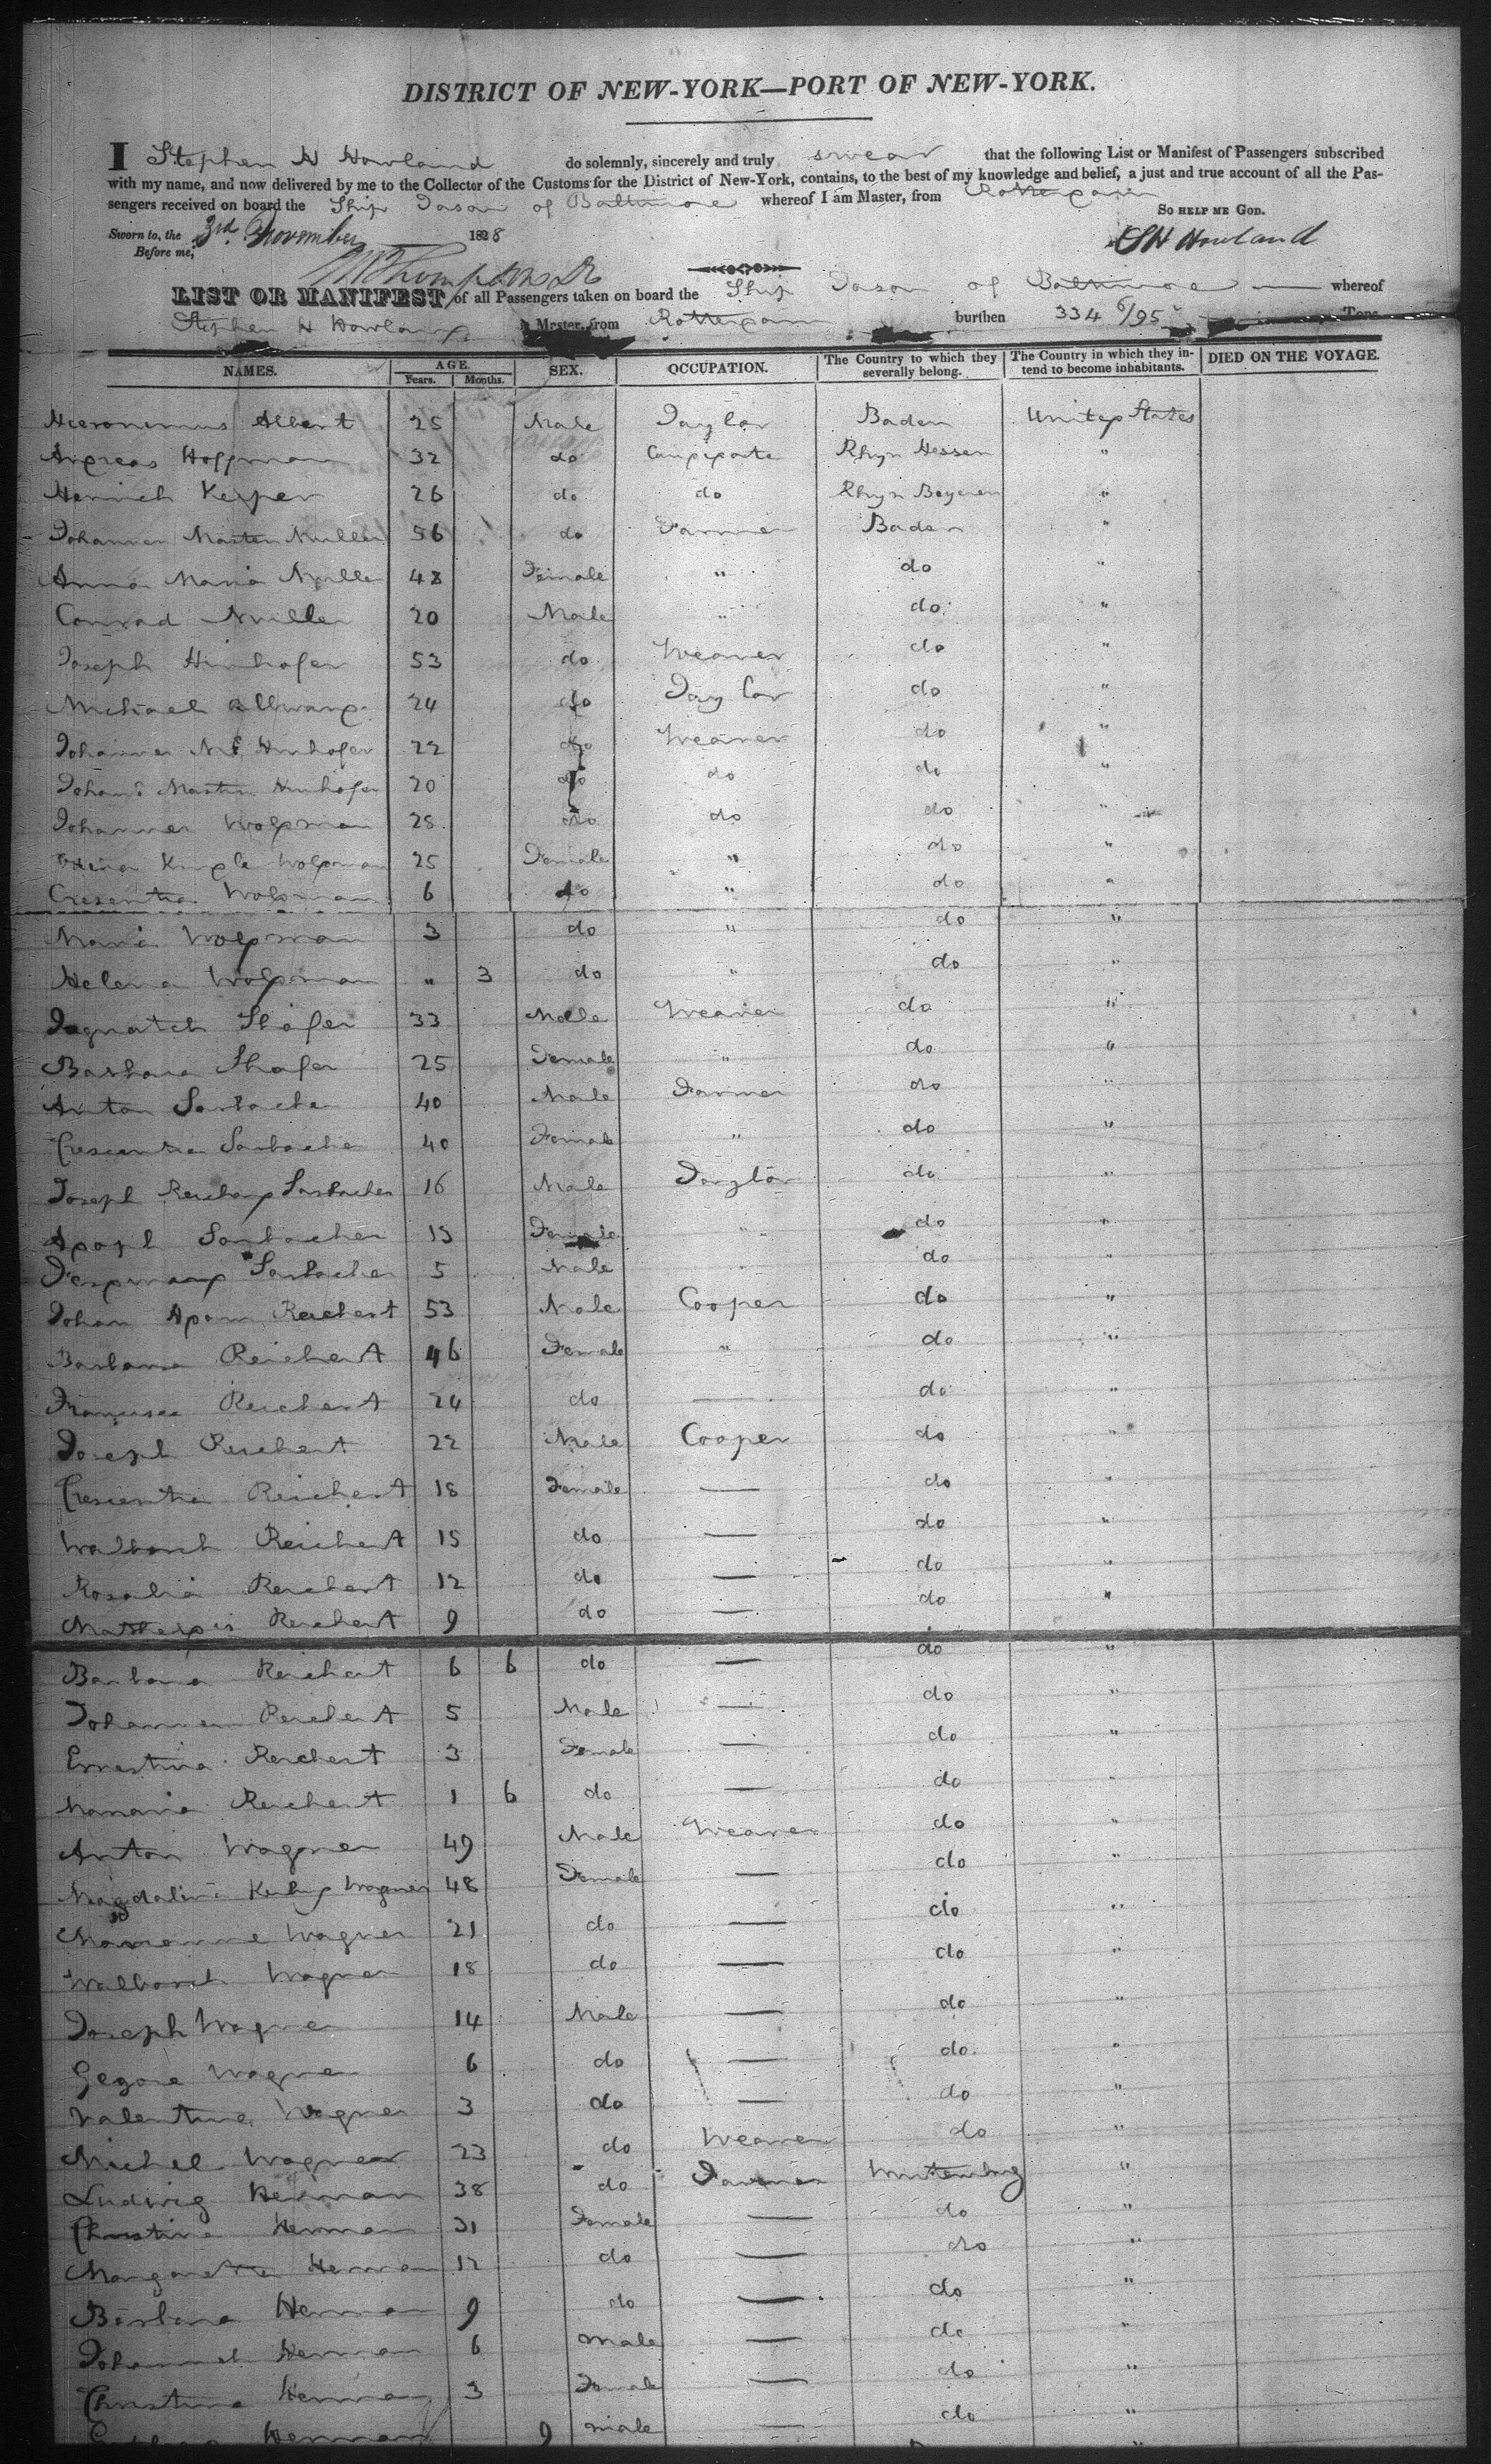 DISTRICT OF NEW-YORK—PORT OF NEW-YORK.
I Stephen H Howland do solemnly, sincerely and truly swear that the following List or Manifest of Passengers subscribed
with my name, and now delivered by me to the Collector of the Customs for the District of New-York, contains, to the best of my knowledge and belief, a just and true account of all the Pas-
sengers received on board the Ship Jason of Baltimore whereof I am Master, from Rotterdam
So help me God.
Sworn to, the 3rd November 1828
Before me, S H Howland
LIST OR MANIFEST of all Passengers taken on board the Ship Jason of Baltimore whereof
Stephen H Howland Master, from Rotterdam burthen 334 6/95 Tons
NAMES. AGE. Years. Months. SEX. OCCUPATION. The Country to which they severally belong. The Country in which they intend to become inhabitants. DIED ON THE VOYAGE.
Hieronimus Albert 25 Male Taylor Baden United States
Andreas Hoffman 32 do Rhyn Hessen "
Henrich 26 do do Rhyn Beyeren "
Johannes Martin Muller 56 do Farmer Baden "
Anna Maria Muller 48 Female " do "
Conrad Muller 20 Male " do "
Joseph Hinhofer 53 do Weaver do "
Michael 24 do Taylor do "
Johannes Hinhofer 22 do Weaver do "
Martin Hinhofer 20 do do do "
Johannes Wolfman 28 do do do "
Wolfman 25 Female " do "
Cresentia Wolfman 6 do " do "
Maria Wolfman 3 do " do "
Helena Wolfman " 3 do " do "
Shafer 33 Male Weaver do "
Barbara Shafer 25 Female " do "
Anton Sasbacher 40 Male Farmer do "
Crescentia Sasbacher 40 Female " do "
Joseph Sasbacher 16 Male Taylor do "
Sasbacher 15 Female " do "
Sasbacher 5 Male " do "
Johan Adam Reichert 53 Male Cooper do "
Barbara Reichert 46 Female " do "
Francisca Reichert 24 do — do "
Joseph Reichert 22 Male Cooper do "
Crescentia Reichert 18 Female — do "
Walborch Reichert 15 do — do "
Rosalia Reichert 12 do — do "
Reichert 9 do — do "
Barbara Reichert 6 6 do — do "
Johannes Reichert 5 Male — do "
Ernestina Reichert 3 Female — do "
Reichert 1 6 do — do "
Anton Wagner 49 Male Weaver do "
Magdalina Wagner 48 Female — do "
Marianne Wagner 21 do — do "
Walborch Wagner 18 do — do "
Joseph Wagner 14 Male — do "
Wagner 6 do — do "
Valentine Wagner 3 do — do "
Michel Wagner 23 do Weaver do "
Ludwig Herman 38 do Farmer Wurtemburg "
Christina Herman 31 Female — do "
Margaretta Herman 12 do — do "
Barbara Herman 9 do — do "
Johannes Herman 6 male — do "
Christina Herman 3 Female — do "
Herman 9 male — do "